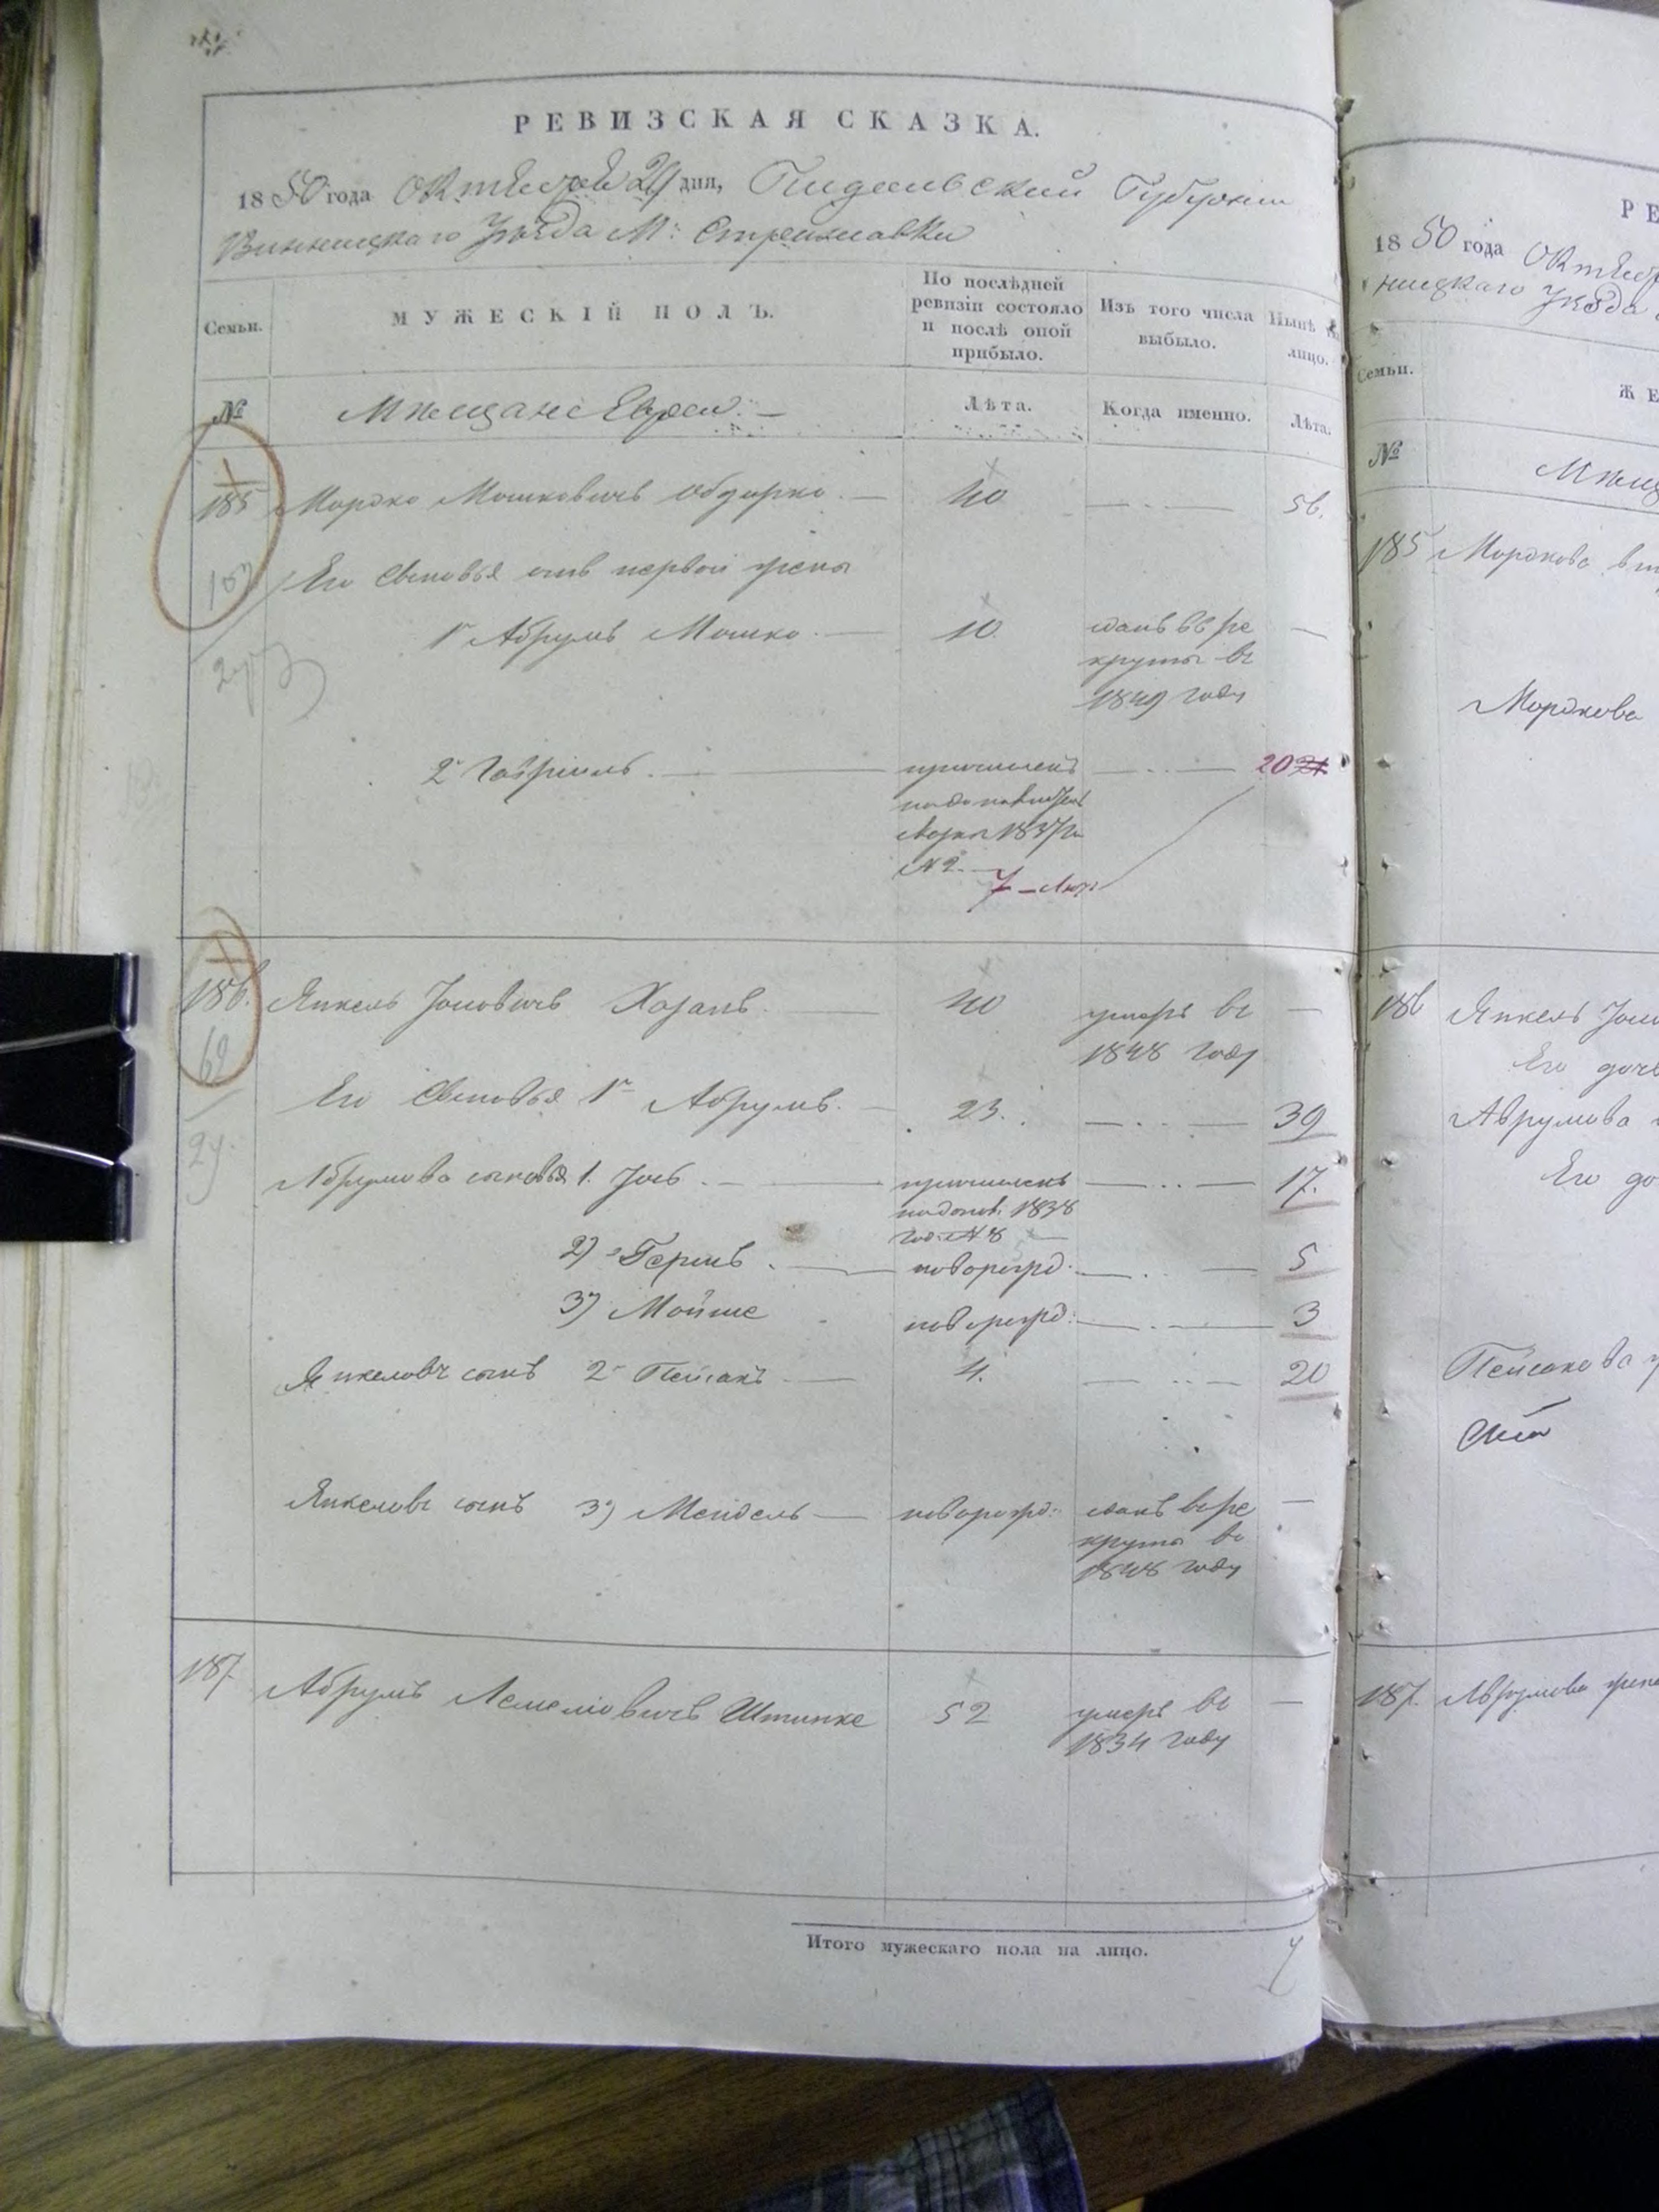 РЕВИЗСКАЯ СКАЗКА.
1850 года Октября 29 дня, Подольской Губернии
Винницкаго Уѣзда М: Стрижавки
Семьи.
МУЖЕСКІЙ ПОЛЪ.
По послѣдней ревизіи состояло и послѣ оной прибыло.
Изъ того числа выбыло.
Нынѣ на лицо.
№
Мѣщане Евреи. —
Лѣта.
Когда именно.
Лѣта.
185 Мордко Мошковичъ — 40 — 56.
Его сыновья отъ первой жены
1й Аврумъ Мошко — 10. сданъ въ ре
круты въ
1849 году —
2й Гавріилъ. — причисленъ — 20
1837
№ 2. —
7 – лѣтъ
186. Янкель Іосіовичъ Хазанъ. — 40 умеръ въ —
69
1848 году
Его Сыновья 1й Аврумъ. — 23. — 39
Аврумова сыновья 1. Іось. — причисленъ — 17.
1838
№ 8
2) Гершъ. — новорожд. — 5
3) Мойше новорожд: — 3
Янкелевъ сынъ 2й Пейсахъ. — 4. — 20
Янкелевъ сынъ 3) Мендель — новорожд: сданъ въ ре
круты въ
1848 году —
187 Аврумъ Лемелiовичъ Штипке 52 умеръ въ —
1834 году
Итого мужескаго пола на лицо. 7
РЕ
1850 года Октяб
ницкаго Уѣзда
Семьи.
ЖЕ
№
Мѣщ
185 Мордкова
Мордкова
186 Янкель
Его дочь
Аврумова
Его до
Пейсахова
187. Аврумова жена